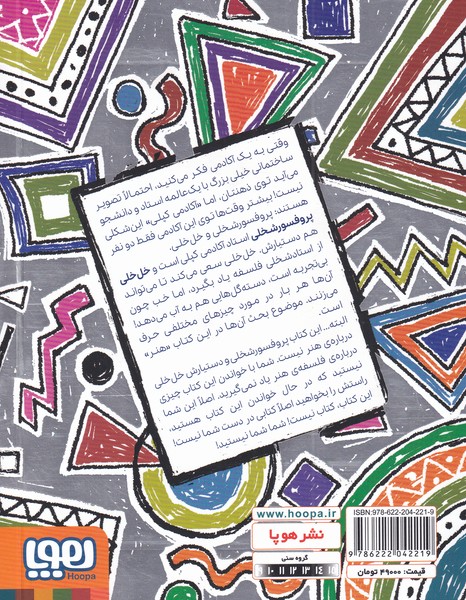 وقتی به یک آکادمی فکر می‌کنید، احتمالاً تصویر
ساختمانی خیلی بزرگ با یک‌عالمه استاد و دانشجو
می‌آید توی ذهنتان. اما «آکادمی کپلی» این‌شکلی
نیست! بیشتر وقت‌ها توی این آکادمی فقط دو نفر
هستند: پروفسورشخلی و خل‌خلی.
پروفسورشخلی استاد آکادمی کپلی است و خل‌خلی
هم دستیارش. خل‌خلی سعی می‌کند تا می‌تواند
از استادشخلی فلسفه یاد بگیرد، اما خب چون
بی‌تجربه است، دسته‌گل‌هایی هم به آب می‌دهد!
آن‌ها هر بار در مورد چیزهای مختلفی حرف
می‌زنند. موضوع بحث آن‌ها در این کتاب «هنر»
است.
البته... این کتاب پروفسورشخلی و دستیارش خل‌خلی
درباره‌ی هنر نیست. شما با خواندن این کتاب چیزی
درباره‌ی فلسفه‌ی هنر یاد نمی‌گیرید. اصلاً این شما
نیستید که در حال خواندن این کتاب هستید.
راستش را بخواهید اصلاً کتابی در دست شما نیست!
این کتاب، کتاب نیست! شما شما نیستید!
www.hoopa.ir
نشر هوپا
گروه سنی
۹ ۱۰ ۱۱ ۱۲ ۱۳ ۱۴ ۱۵
ISBN: 978-622-204-221-9
9 786222 042219
قیمت: ۴۹۰۰۰ تومان
هوپا
Hoopa